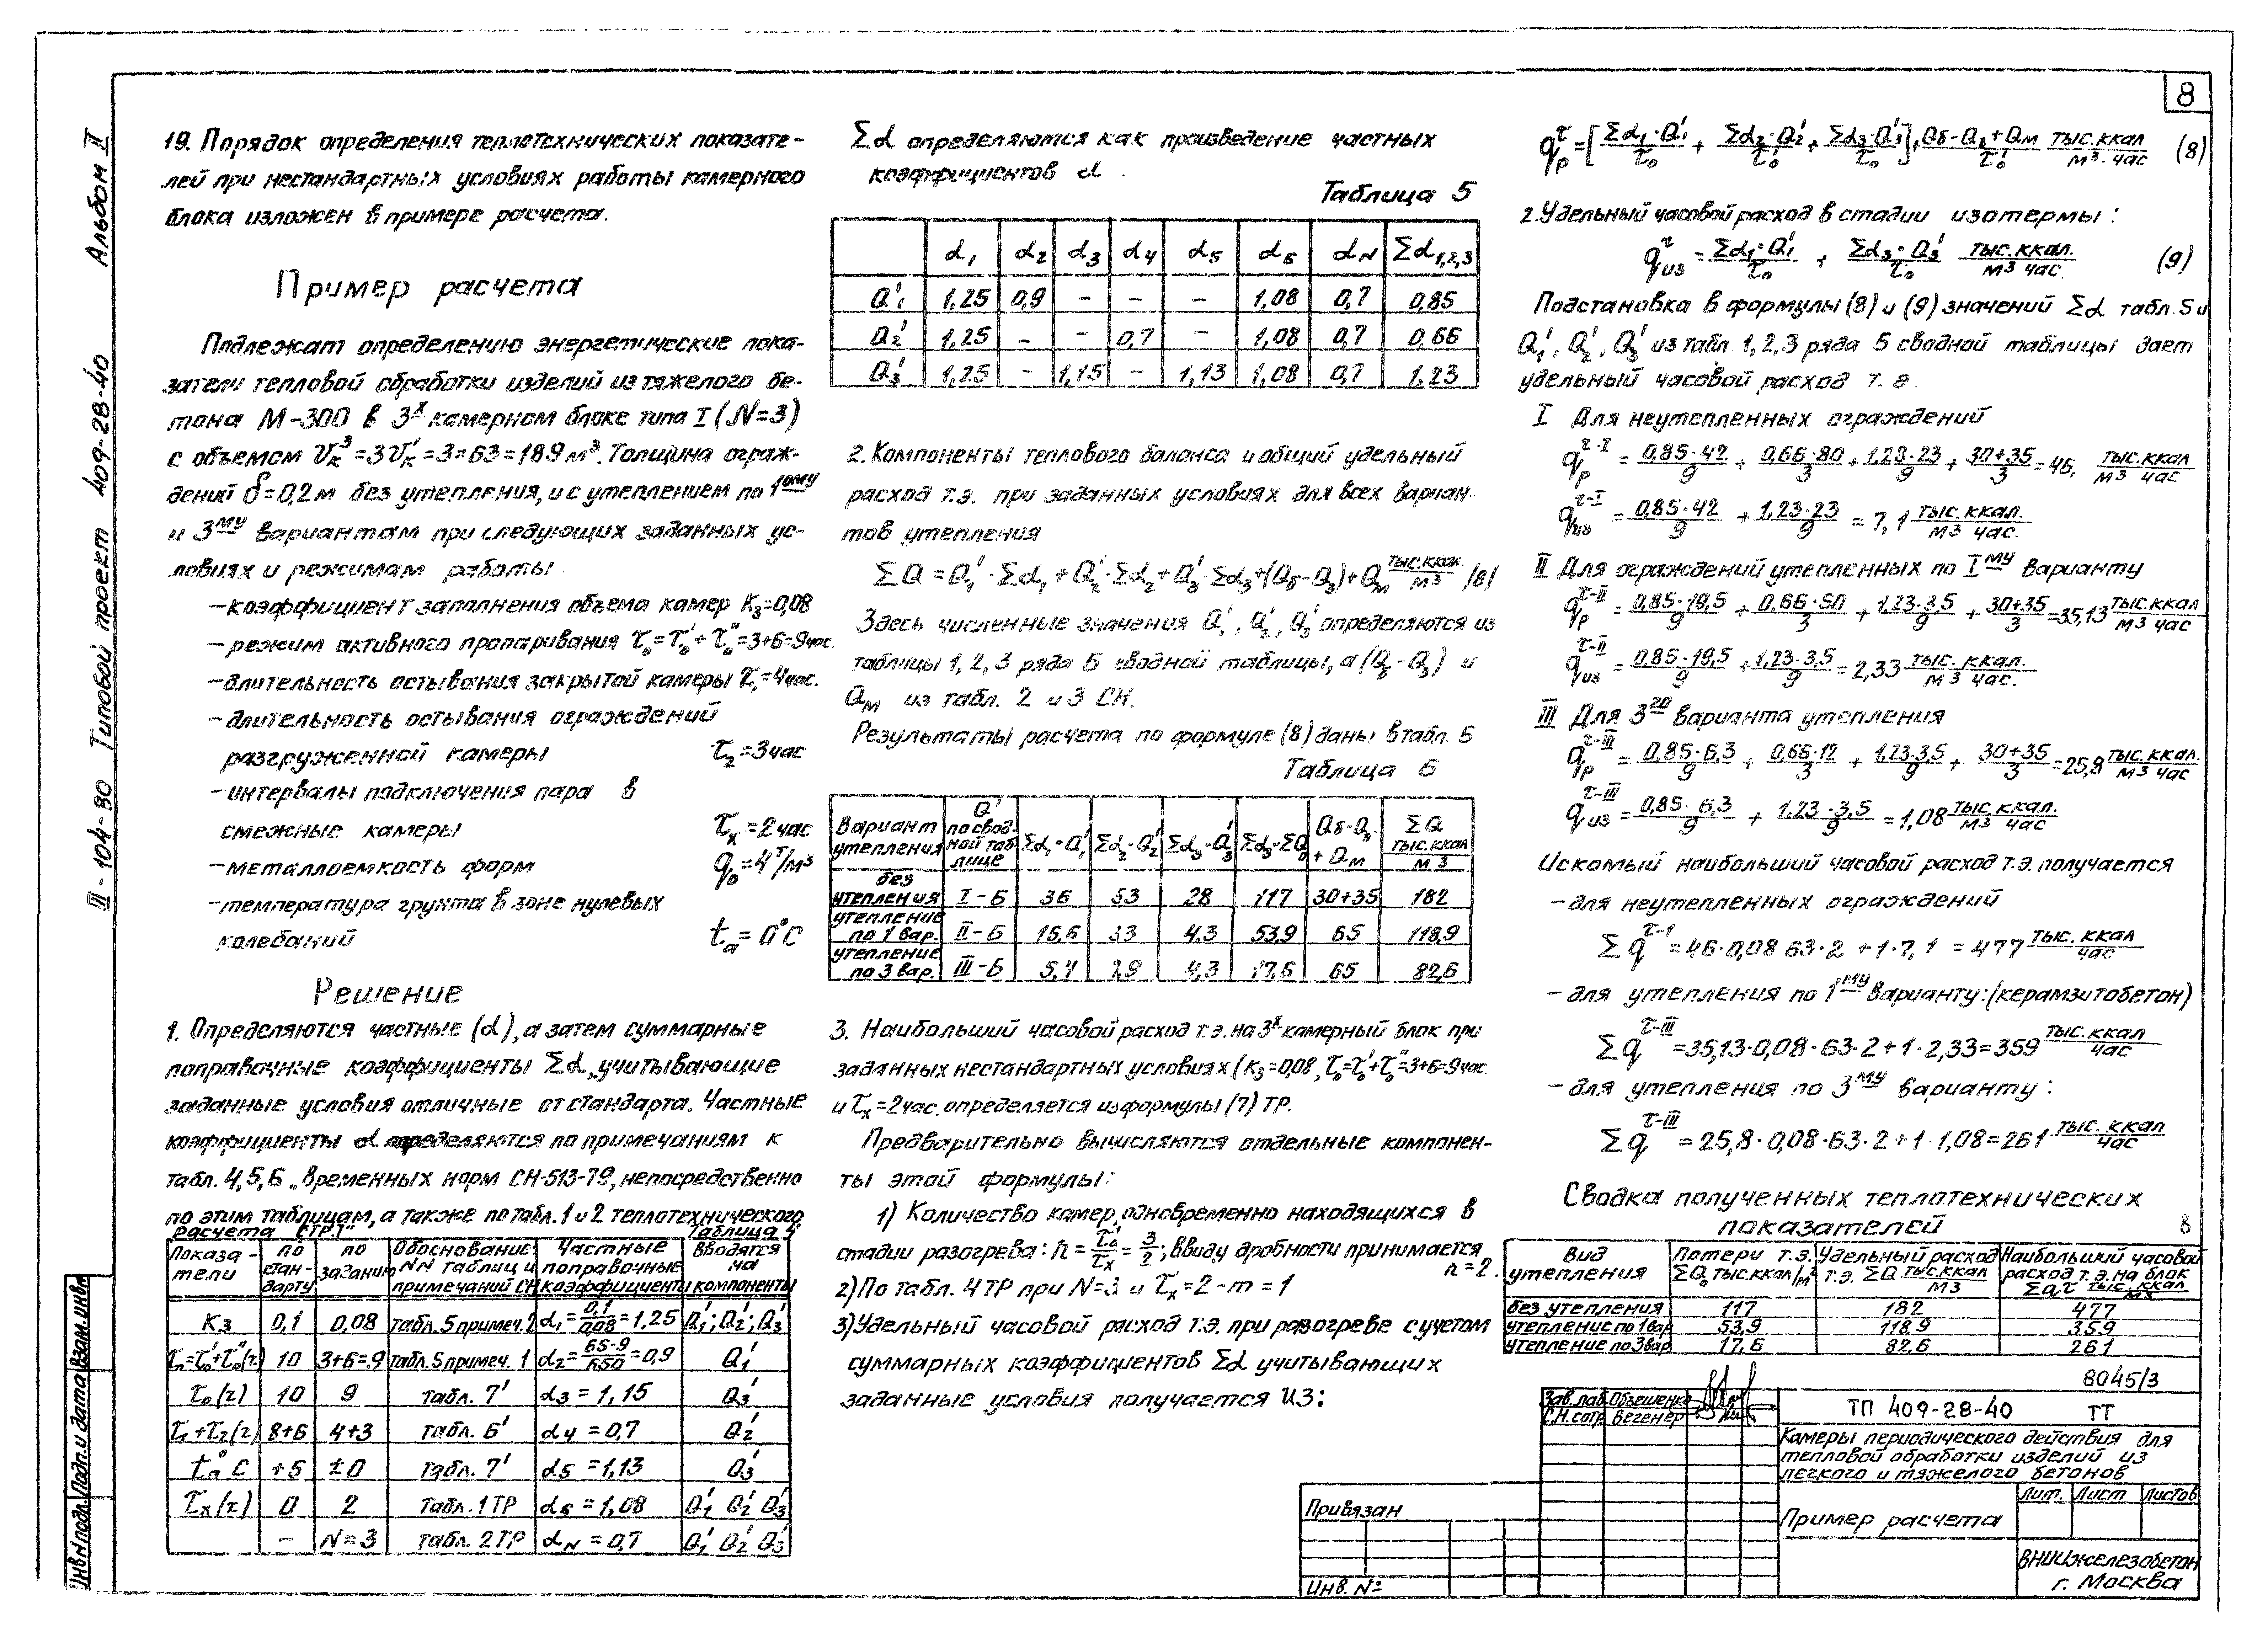 8
III-104-80 Типовой проект 409-28-40 Альбом II
19. Порядок определения теплотехнических показате-
лей при нестандартных условиях работы камерного
блока изложен в примере расчета.
Пример расчета
Подлежат определению энергетические пока-
затели тепловой обработки изделий из тяжелого бе-
тона М-300 в 3х камерном блоке типа I (N=3)
с объемом Vк³=3Vк'=3×63=189м³. Толщина ограж-
дений δ=0,2м без утепления, и с утеплением по 1ому
и 3му вариантам при следующих заданных ус-
ловиях и режимам работы.
-коэффициент заполнения объема камер Кз=0,08
-режим активного пропаривания τо=τо'+τо"=3+6=9час.
-длительность остывания закрытой камеры τ₁=4час.
-длительность остывания ограждений
разгруженной камеры τ₂=3час
-интервалы подключения пара в
смежные камеры τх=2час
-металлоемкость форм qо=4т/м³
-температура грунта в зоне нулевых
колебаний tа=0°С
Решение
1. Определяются частные (α), а затем суммарные
поправочные коэффициенты Σα, учитывающие
заданные условия отличные от стандарта. Частные
коэффициенты α определяются по примечаниям к
табл. 4,5,6 „Временных норм СН-513-79, непосредственно
по этим таблицам, а также по табл. 1 и 2 теплотехнического
расчета стр.1" Таблица 4
Показа-тели | по стан-дарту | по заданию | Обоснование NN таблиц и примечаний СН | Частные поправочные коэффициенты | Вводятся на компоненты
Кз | 0,1 | 0,08 | табл. 5 примеч. 2 | α₁=0,1/0,08=1,25 | Q₁'; Q₂'; Q₃'
τо=τо'+τо"(г) | 10 | 3+6=9 | табл. 5 примеч. 1 | α₂=65·9/650=0,9 | Q₁'
τо(г) | 10 | 9 | табл. 7' | α₃=1,15 | Q₃'
τ₁+τ₂(г) | 8+6 | 4+3 | табл. 6' | α₄=0,7 | Q₂'
tа°С | +5 | ±0 | табл. 7' | α₅=1,13 | Q₃'
τх(г) | 0 | 2 | табл. 1 ТР | α₆=1,08 | Q₁' Q₂' Q₃'
- | N=3 | табл. 2 ТР | αN=0,7 | Q₁' Q₂' Q₃'
Σα определяются как произведение частных
коэффициентов α.
Таблица 5
α₁ | α₂ | α₃ | α₄ | α₅ | α₆ | αN | Σα₁,₂,₃
Q₁' | 1,25 | 0,9 | - | - | - | 1,08 | 0,7 | 0,85
Q₂' | 1,25 | - | - | 0,7 | - | 1,08 | 0,7 | 0,66
Q₃' | 1,25 | - | 1,15 | - | 1,13 | 1,08 | 0,7 | 1,23
2. Компоненты теплового баланса и общий удельный
расход т.э. при заданных условиях для всех вариан-
тов утепления
ΣQ=Q₁'·Σα₁+Q₂'·Σα₂+Q₃'·Σα₃+(Qб-Qэ)+Qм тыс.ккал/м³ /8/
Здесь численные значения Q₁', Q₂', Q₃' определяются из
таблицы 1,2,3 ряда Б сводной таблицы, а (Qб-Qэ) и
Qм из табл. 2 и 3 СН.
Результаты расчета по формуле (8) даны в табл. 6
Таблица 6
Вариант утепления | Q' по свод-ной таб-лице | Σα₁·Q₁' | Σα₂·Q₂' | Σα₃·Q₃' | Σα₃·ΣQ₀ | Qб-Qэ + Qм | ΣQ тыс.ккал/м³
без утепления | I-Б | 36 | 53 | 28 | 117 | 30+35 | 182
утепление по 1 вар. | II-Б | 16,6 | 33 | 4,3 | 53,9 | 65 | 118,9
утепление по 3 вар. | III-Б | 5,4 | 7,9 | 4,3 | 17,6 | 65 | 82,6
3. Наибольший часовой расход т.э. на 3х камерный блок при
заданных нестандартных условиях (Кз=0,08, τо=τо'+τо"=3+6=9час.
и τх=2час. определяется из формулы (7) ТР.
Предварительно вычисляются отдельные компонен-
ты этой формулы:
1) Количество камер, одновременно находящихся в
стадии разогрева: n=τо'/τх=3/2; ввиду дробности принимается
n=2.
2) По табл. 4 ТР при N=3 и τх=2-m=1
3) Удельный часовой расход т.э. при разогреве с учетом
суммарных коэффициентов Σα учитывающих
заданные условия получается из:
qр^τ=[Σα₁·Q₁'/τо + Σα₂·Q₂'/τо' + Σα₃·Q₃'/τо], Qб-Qэ+Qм/τо' тыс.ккал/м³·час (8)
2. Удельный часовой расход в стадии изотермы:
qиз^τ=Σα₁·Q₁'/τо + Σα₃·Q₃'/τо тыс.ккал./м³ час. (9)
Подстановка в формулы (8) и (9) значений Σα табл. 5 и
Q₁', Q₂', Q₃' из табл. 1,2,3 ряда Б сводной таблицы дает
удельный часовой расход т.э.
I Для неутепленных ограждений
qр^τ-I=0,85·42/9 + 0,66·80/3 + 1,23·23/9 + 30+35/3=46, тыс.ккал/м³ час
qиз^τ-I=0,85·42/9 + 1,23·23/9=7,1 тыс.ккал./м³ час.
II Для ограждений утепленных по Iму варианту
qр^τ-II=0,85·19,5/9 + 0,66·50/3 + 1,23·3,5/9 + 30+35/3=35,13 тыс.ккал/м³ час
qиз^τ-II=0,85·19,5/9 + 1,23·3,5/9=2,33 тыс.ккал./м³ час.
III Для 3го варианта утепления
qр^τ-III=0,85·6,3/9 + 0,66·12/3 + 1,23·3,5/9 + 30+35/3=25,8 тыс.ккал./м³ час
qиз^τ-III=0,85·6,3/9 + 1,23·3,5/9=1,08 тыс.ккал./м³ час
Искомый наибольший часовой расход т.э. получается
-для неутепленных ограждений
Σq^τ-1=46·0,08 63·2+1·7,1=477 тыс.ккал/час
-для утепления по 1му варианту: (керамзитобетон)
Σq^τ-III=35,13·0,08·63·2+1·2,33=359 тыс.ккал/час
-для утепления по 3му варианту:
Σq^τ-III=25,8·0,08·63·2+1·1,08=261 тыс.ккал/час
Сводка полученных теплотехнических
показателей 8
Вид утепления | Потери т.э. ΣQ₀ тыс.ккал/м³ | Удельный расход т.э. ΣQ тыс.ккал/м³ | Наибольший часовой расход т.э. на блок Σq,τ тыс.ккал
без утепления | 117 | 182 | 477
утепление по 1 вар | 53,9 | 118,9 | 359
утепление по 3 вар | 17,6 | 82,6 | 261
8045/3
Зав. лаб. Объешенко
С.Н.сотр Вегенер
ТП 409-28-40 ТТ
Камеры периодического действия для
тепловой обработки изделий из
легкого и тяжелого бетонов
Пример расчета
Лит. Лист Листов
ВНИИжелезобетон
г. Москва
Привязан
Инв. №
Инв.№подл. Подп. и дата Взам.инв.№